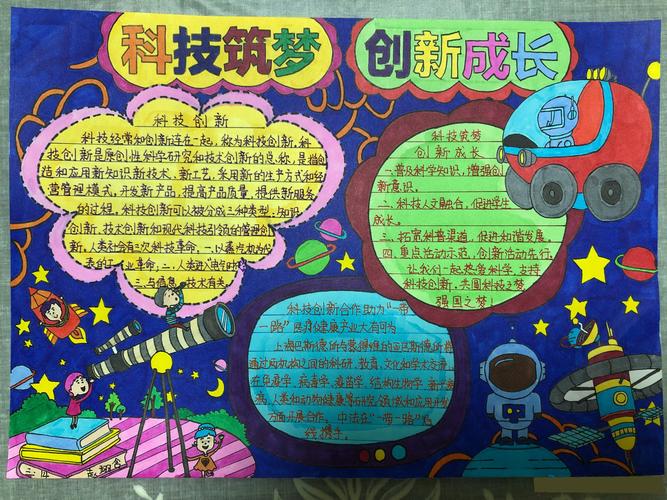 科技筑梦 创新成长
科技创新
科技经常和创新连在一起，称为科技创新，科
技创新是原创性科学研究和技术创新的总称，是指创
造和应用新知识新技术、新工艺，采用新的生产方式和经
营管理模式，开发新产品，提高产品质量，提供新服务
的过程，科技创新可以被分成三种类型：知识
创新、技术创新和现代科技引领的管理创
新。人类社会有三次科技革命，一、以蒸气机为代
表的工业革命，二、人类进入电气时代
三、与信息技术有关
科技筑梦
创新成长
一、普及科学知识，增强创
新意识。
二、科技人文融合，促进学生
成长。
三、拓宽科普渠道，促进和谐发展。
四、重点活动示范，创新活动先行，
让我们一起热爱科学，支持
科技创新，共圆科技之梦
强国之梦！
科技创新合作助力“一带
一路”医疗健康产业大有可为
上海巴斯德所与
通过两机构之间的科研、教育、文化和学术交流，
在免疫学、病毒学、疫苗学、结构生物学、
人类和动物健康等研究领域和应用开发
方面开展合作。中法在“一带一路”
携手。